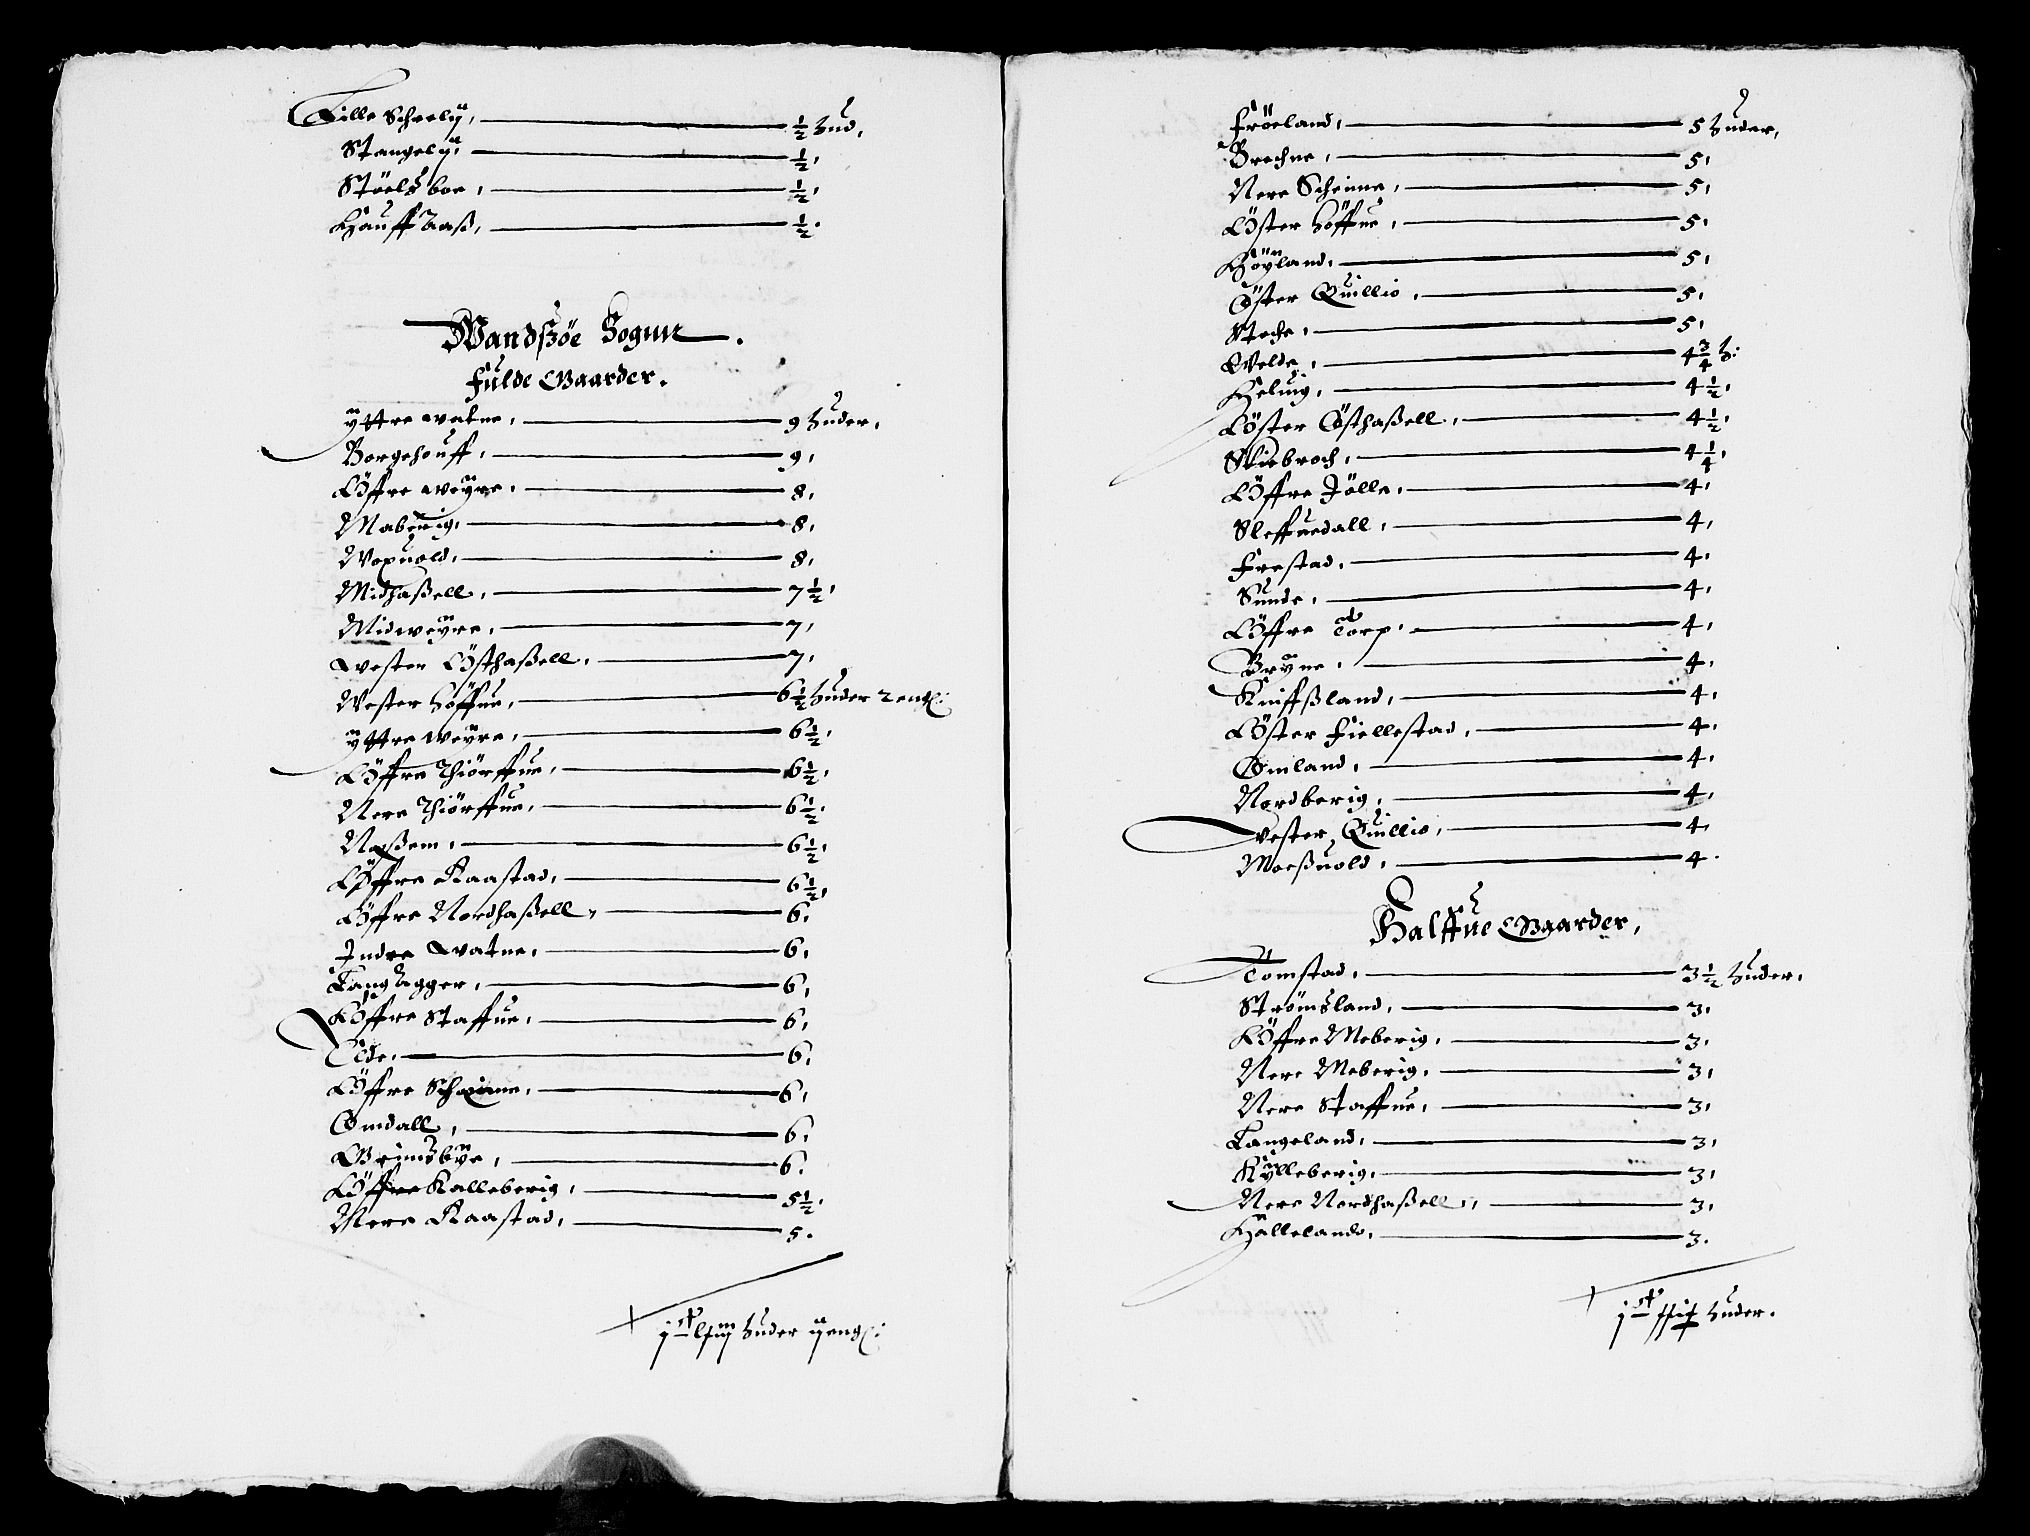 Lille Scheely, ½ Hud,
Stangely, ½,
Stöels boe, ½,
Hauffaas, ½.
Wandßöe Sognn.
Fulde Gaarder.
Yttre watne, 9 Huder,
Borgehouff, 9,
Öffre Weyre, 8,
Maberig, 8,
Woxuold, 8,
Midhaßell, 7½,
Midweyre, 7,
Wester Östhaßell, 7,
Wester Höffue, 6½ Huder 2 eng:
Yttre Weyre, 6½,
Öffre Thiörffue, 6½,
Nere Thiörffue, 6½.
Naßem, 6½,
Öffre Kaastad, 6½,
Öffre Nordhaßell, 6.
Indre Watne, 6,
Langagger, 6,
Öffre Staffue, 6,
Elde, 6,
Öffre Scheime, 6,
Omdall, 6,
Grimsbye, 6.
Öffre Kalleberig, 5½,
Nere Kaastad, 5.
Huder ij eng:
Fröeland, 5 Huder,
Brechne, 5,
Nere Scheime, 5,
Öster Höffue, 5.
Höyland, 5,
Öster Quillio, 5,
Steche, 5,
Welde, 4¾ H:
Heluig, 4½,
Öster Östhaßell, 4½,
Skiebroch, 4¼,
Öffre Jölle, 4,
Sleffuedall, 4,
Frestad, 4,
Sunde, 4,
Öffre Torp, 4,
Bryne, 4,
Kniffßland, 4,
Öster Fiellestad, 4,
Omland, 4,
Nordberig, 4,
Wester Quillio, 4,
Moeßuold, 4.
Halffue Gaarder,
Tomstad, 3½ Huder,
Strömsland, 3,
Öffre Meberig, 3.
Nere Meberig, 3,
Nere Staffue, 3,
Langeland, 3,
Kylleberig, 3,
Nere Nordhaßell, 3,
Hallelando, 3.
Huder.